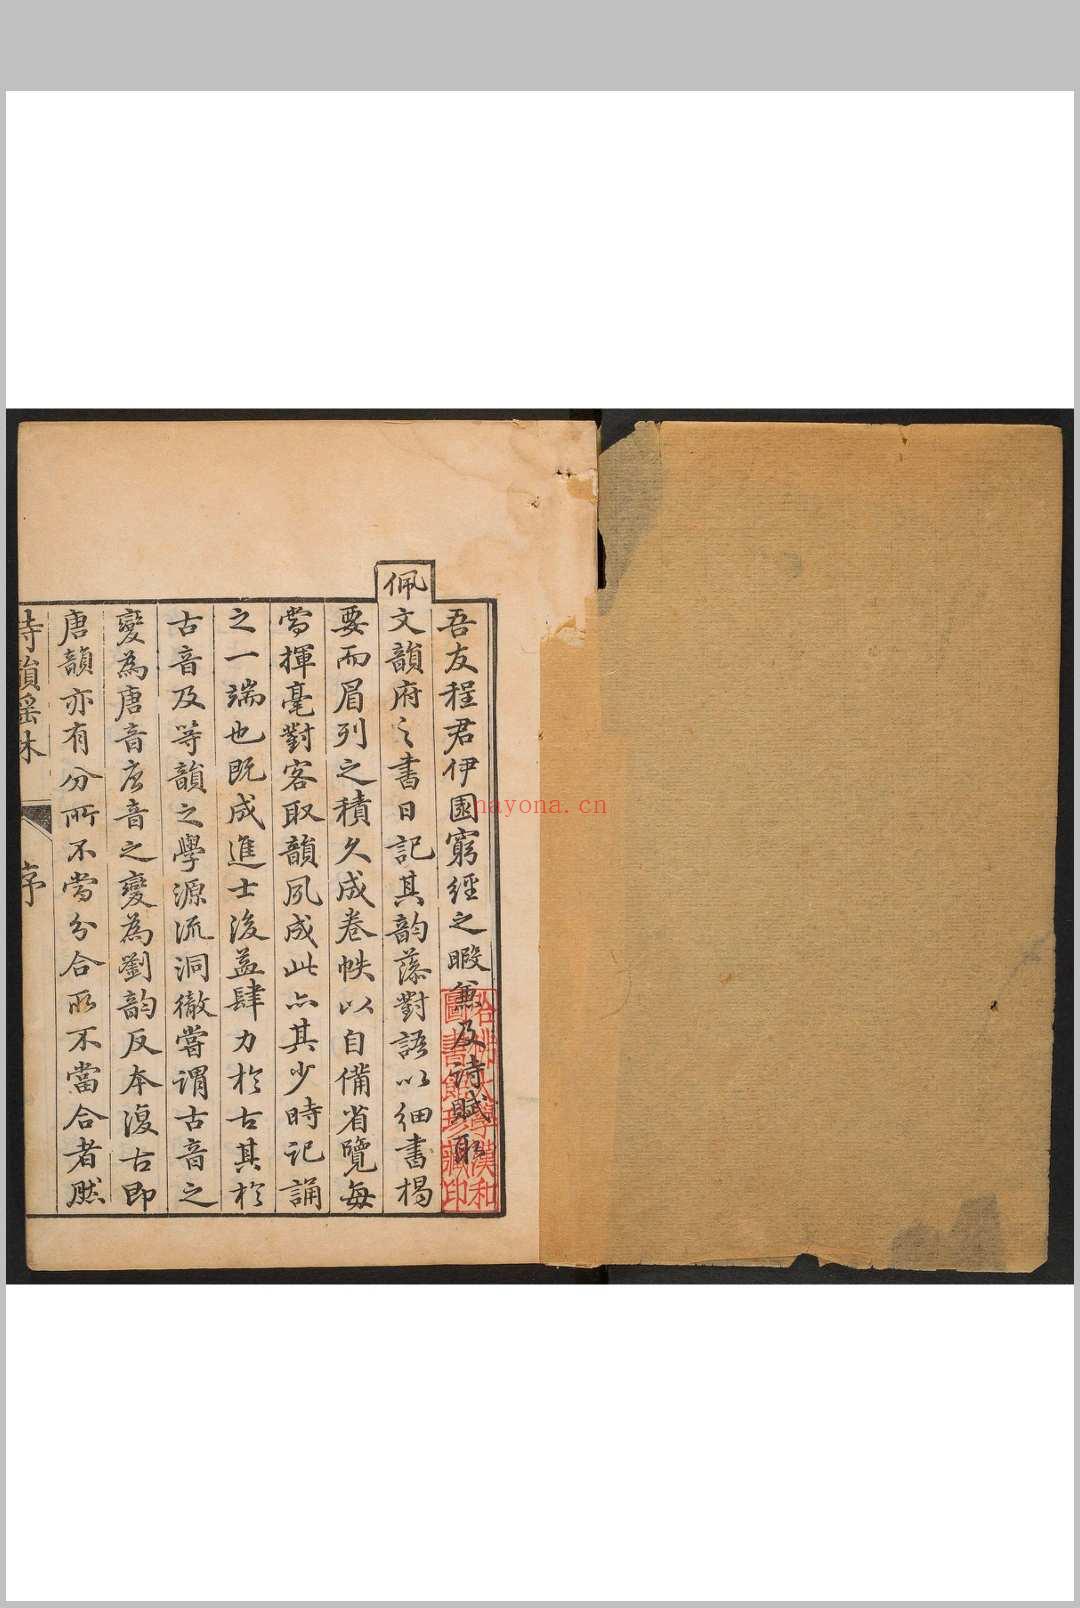 吾友程君伊園窮經之暇兼及詩賦取
佩文韻府之書日記其韵藻對語以細書楬
要而眉列之積久成卷帙以自備省覽每
當揮毫對客取韻夙成此亦其少時記誦
之一端也既成進士後益肆力於古其於
古音及等韻之學源流洞徹嘗謂古音之
變為唐音唐音之變為劉韵反本復古即
唐韻亦有分所不當分合所不當合者然
詩韻瑤林
序
哈佛大學漢和
圖書館珍藏印
nayona.cn